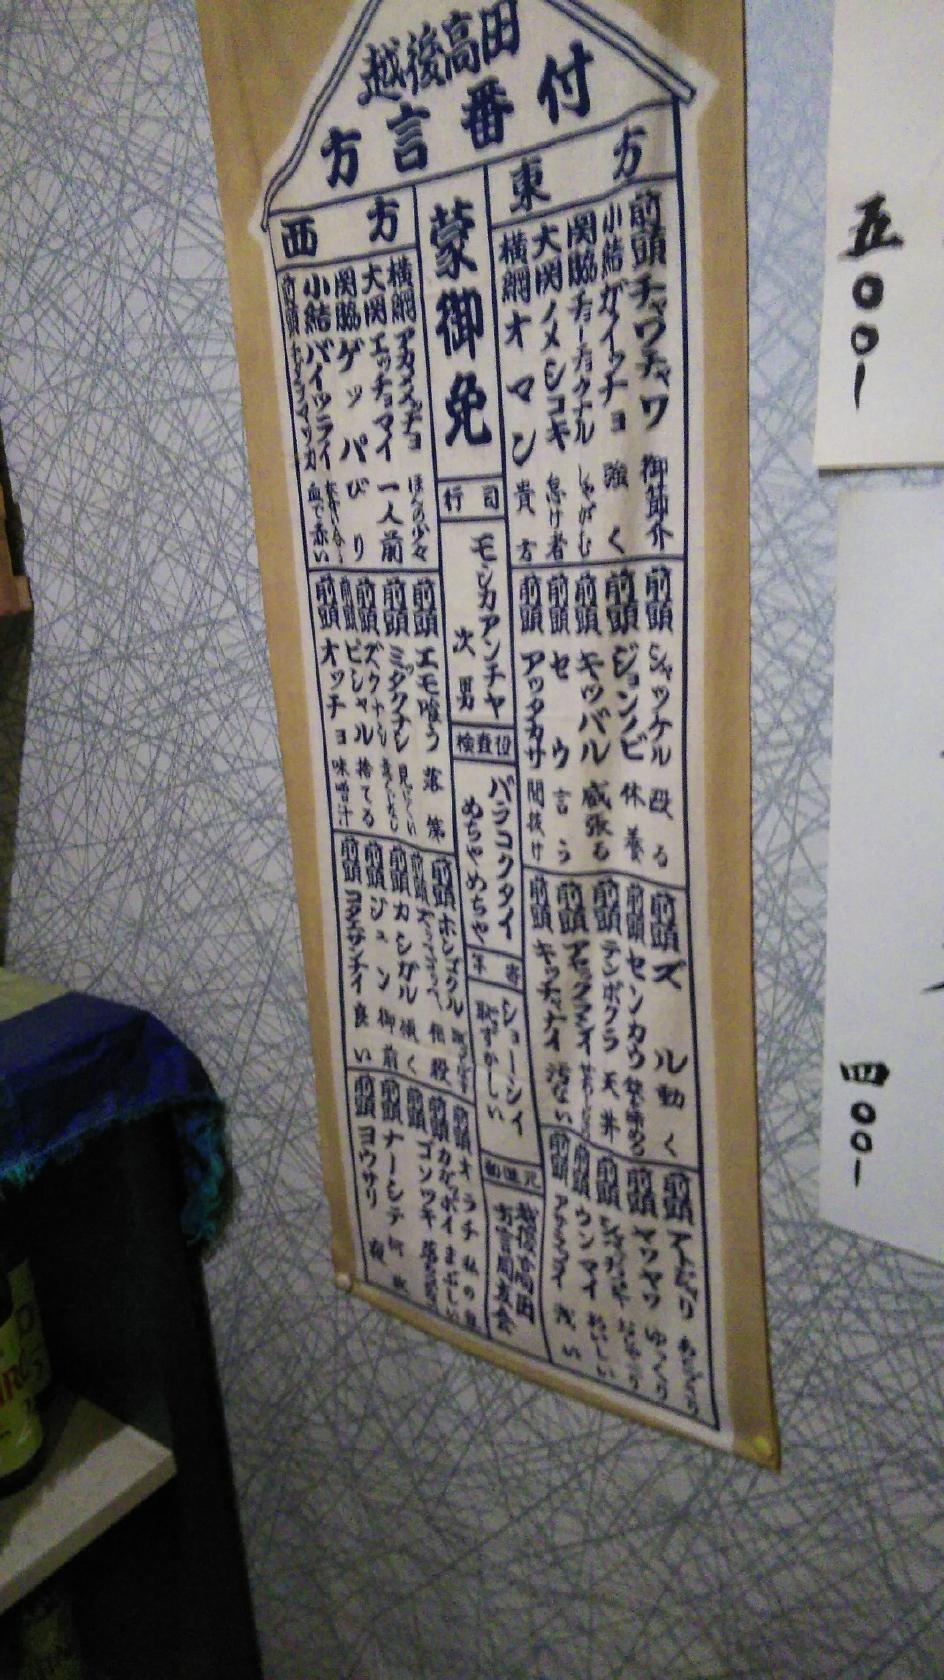 越後高田
方言番付
東方
前頭 チャワチャワ 御節介
小結 ガイッナョ 強く
関脇 チョーチョクナル しゃがむ
大関 ノメシコキ 怠け者
横綱 オマン 貴方
前頭 シャッケル 殴る
前頭 ジョンノビ 休養
前頭 キッパル 威張る
前頭 セウ 言う
前頭 アッタカサ 間抜け
前頭 ズル 動く
前頭 センカウ
前頭 テンボクラ 天井
前頭
前頭 キッチャナイ 汚ない
前頭
前頭 ヤワヤワ ゆっくり
前頭
前頭 ウンマイ おいしい
前頭 浅い
蒙御免
行司
モシカアンチャ
次男
検査役
バラコクタイ
めちゃめちゃ
年寄
ショーシイ
恥ずかしい
勧進元
越後高田
方言同友会
西方
横綱 ほんの少々
大関 エッチョマイ 一人前
関脇 ゲッパ びり
小結
前頭 血で赤い
前頭 エモ喰う 落第
前頭 ミグクナシ
前頭 ズクナシ
前頭 ビシャル 捨てる
前頭 オッチョ 味噌汁
前頭 ホンゴクル
前頭 相殺
前頭 カシガル 傾く
前頭 ジョン 御前
前頭 コタエサンナイ 良い
前頭 オラチ 私の家
前頭 カガッポイ まぶしい
前頭 ゴンツキ
前頭 ナーシテ 何故
前頭 ヨウサリ 夜
五〇〇ー
四〇〇ー